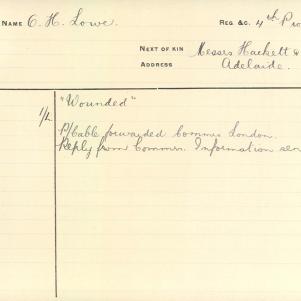 NAME C. H. Lowe. REG &C. 4th Pro
NEXT OF KIN Messrs Hackett &
ADDRESS Adelaide.
"Wounded"
P/Cable forwarded Commis London.
Reply from Commr. Information sen